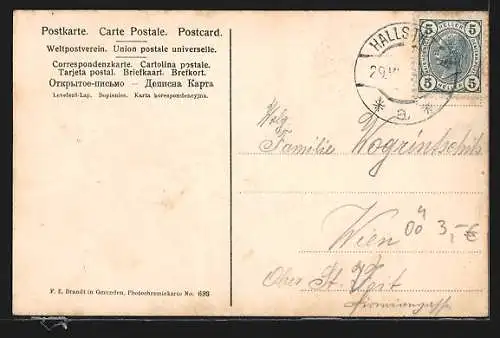 Postkarte. Carte Postale. Postcard.
Weltpostverein. Union postale universelle.
Correspondenzkarte. Cartolina postale.
Tarjeta postal. Briefkaart. Brefkort.
Открытое-письмо — Дописна Карта
Levelezö-Lap. Dopisnice. Karta korespondencyjna.
HALLST
29
* a *
5 HELLER 5
5 HELLER 5
Familie Wogrintschitz
Wien
3,-€
Ober St. Veit
F. E. Brandt in Gmunden, Photochromiekarte No. 689